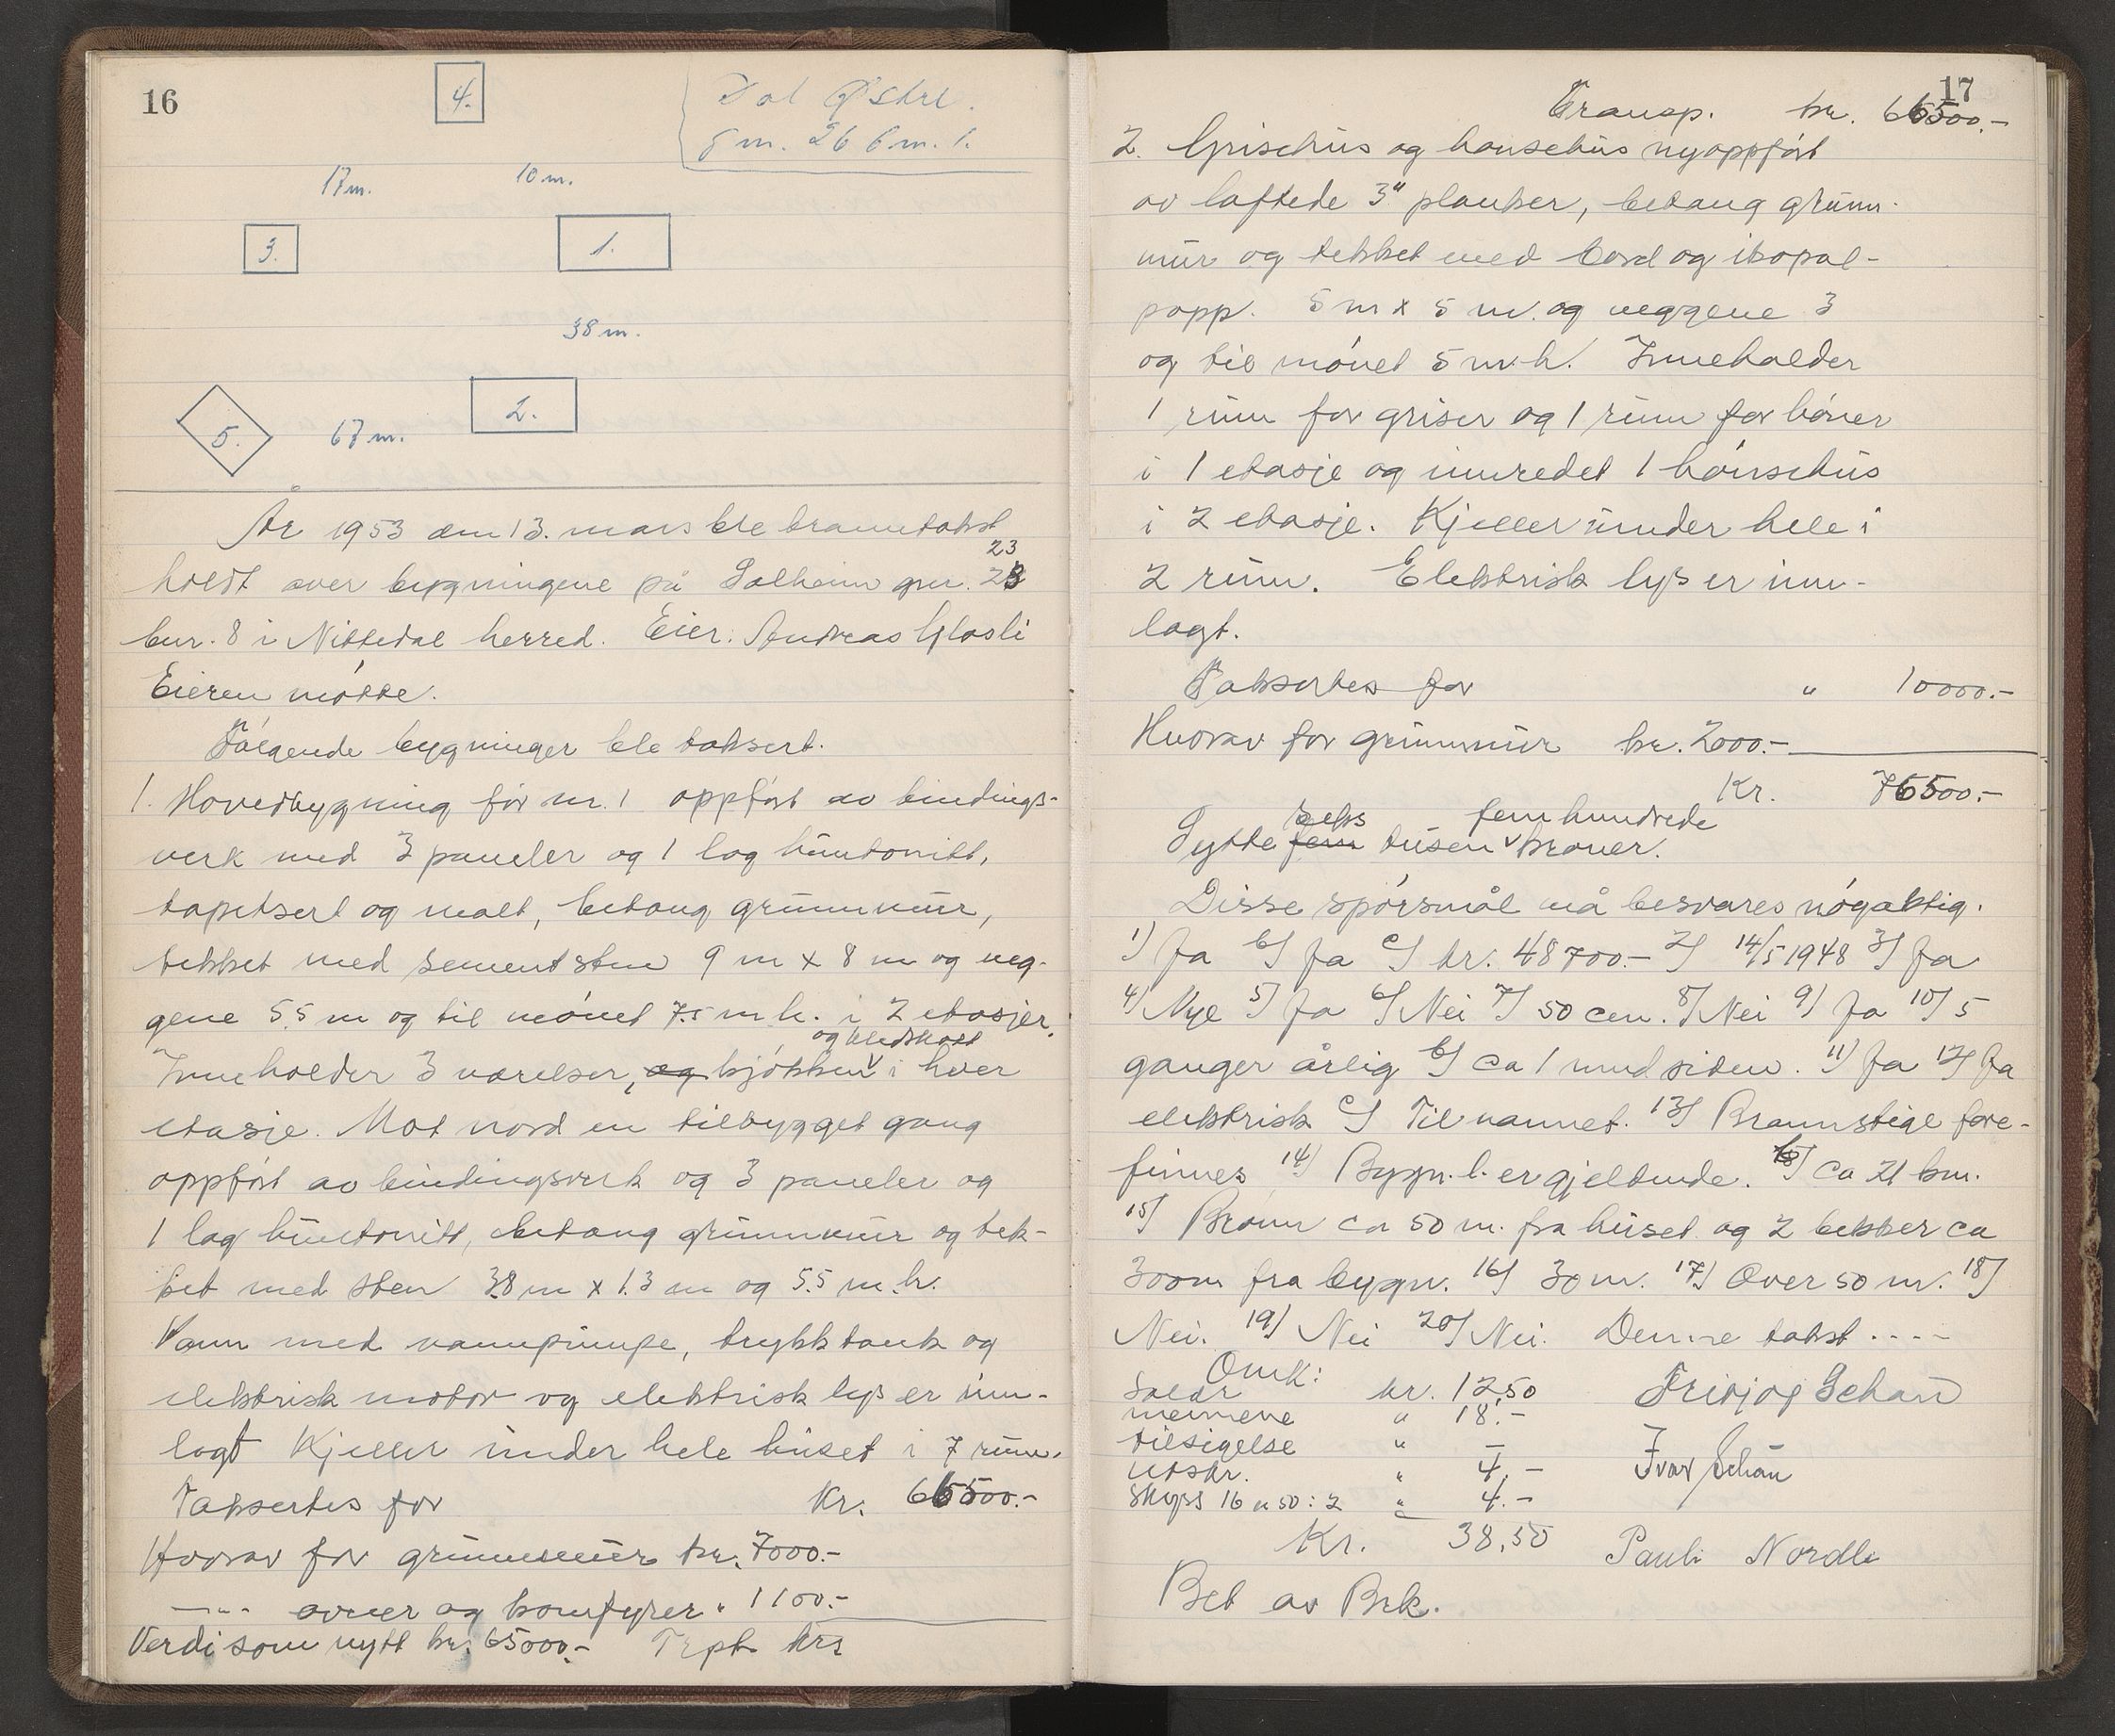 16
4.
Dal Østre.
g m. 26 b m. 1.
17 m.
10 m.
3.
1.
38 m.
5.
67 m.
2.
År 1953 den 13. mars ble branntakst
23
holdt over bygningene på Solheim gnr. 23
bnr. 8 i Nittedal herred. Eier: Andreas Glosli
Eieren møtte.
Følgende bygninger ble taksert.
1. Hovedbygning før nr. 1 oppført av bindings-
verk med 3 paneler og 1 lag huntonitt,
tapetsert og malt, betong grunnmur,
tekket med sementsten 9 m x 8 m og veg-
gene 5.5 m og til mønet 7.5 m h. i 2 etasjer.
og kledskott
Inneholder 3 værelser, og kjøkken v i hver
etasje. Mot nord en tilbygget gang
oppført av bindingsverk og 3 paneler og
1 lag huntonitt, betong grunnmur og tek-
ket med sten 3.8 m x 1.3 m og 5.5 m.h.
Vann med vannpumpe, trykktank og
elektrisk motor og elektrisk lys er inn-
lagt Kjeller under hele huset i 7 rum.
Taksertes for Kr. 66500.-
Hvorav for grunnmur kr. 7000.-
—"— ovner og komfyrer " 1100.-
Verdi som nytt kr. 65000.- Trpt. krs
17
Transp. kr. 66500.-
2. Grisehus og hønsehus nyoppført
av laftede 3" planker, betong grunn-
mur og tekket med bord og ikopal-
papp. 5 m x 5 m. og veggene 3
og til mønet 5 m.h. Inneholder
1 rum for griser og 1 rum for høner
i 1 etasje og innredet 1 hønsehus
i 2 etasje. Kjeller under hele i
2 rum. Elektrisk lys er inn-
lagt.
Taksertes for " 10000.-
Hvorav for grunnmur kr. 2000.-
Kr. 76500.-
seks fem hundrede
Sytte fem tusen v kroner.
Disse spørsmål må besvares nøgaktig.
1) Ja b) Ja c) kr. 48700.- 2) 14/5 1948 3) Ja
4) Nye 5) Ja 6) Nei 7) 50 cm. 8) Nei 9) Ja 10) 5
ganger årlig b) ca 1 mnd siden. 11) Ja 12) Ja
elektrisk c) Til vannet. 13) Brannstige fore-
finnes 14) Bygn. l. er gjeldende. b) ca 21 km.
15) Brønn ca 50 m. fra huset og 2 bekker ca
300 m fra bygn. 16) 30 m. 17) Over 50 m. 18)
Nei. 19) Nei 20) Nei. Denne takst ----
Omk:
kr. 12,50 Fridjof Schau
mennene " 18.-
tilsigelse " —
utskr. " 4.- Ivar Schau
Skyss 16 a 50 : 2 " 4.-
Kr. 38,50 Pauli Nordli
Bet av Brk.